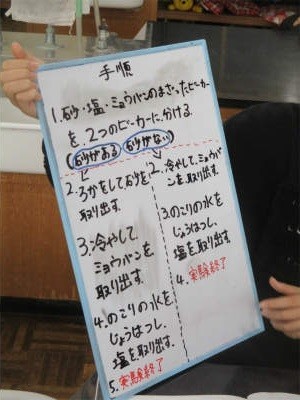 手順
1.砂・塩・ミョウバンのまざったビーカー
を、2つのビーカーに分ける。
(砂がある 砂がない)
2.ろかをして砂を
取り出す。
3.冷やして
ミョウバンを
取り出す。
4.のこりの水を
じょうはつし、
塩を取り出す。
5.実験終了
2.冷やして、ミョウバ
ンを取り出す。
3.のこりの水を
じょうはつし、
塩を取り出す。
4.実験終了